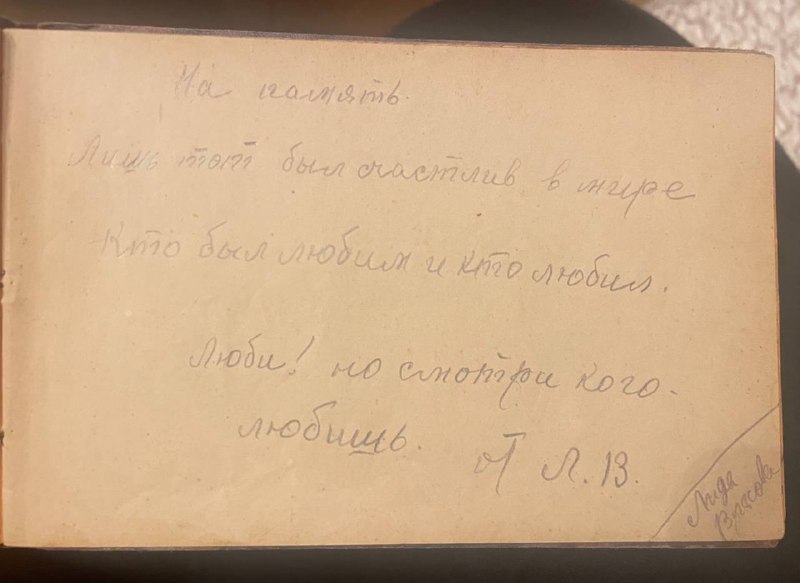 На память.
Лишь тот был счастлив в мире
Кто был любим и кто любил.
Люби! но смотри кого
любишь.
от Л. В.
Лида